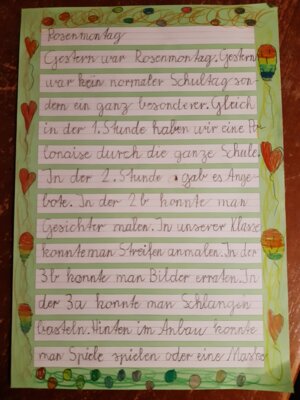 Rosenmontag
Gestern war Rosenmontag. Gestern
war kein normaler Schultag son-
dern ein ganz besonderer. Gleich
in der 1. Stunde haben wir eine Po-
lonaise durch die ganze Schule.
In der 2. Stunde gab es Ange-
bote. In der 2b konnte man
Gesichter malen. In unserer Klasse
konnte man Streifen anmalen. In der
3b konnte man Bilder erraten. In
der 3a konnte man Schlangen
basteln. Hinten im Anbau konnte
man Spiele spielen oder eine Maske